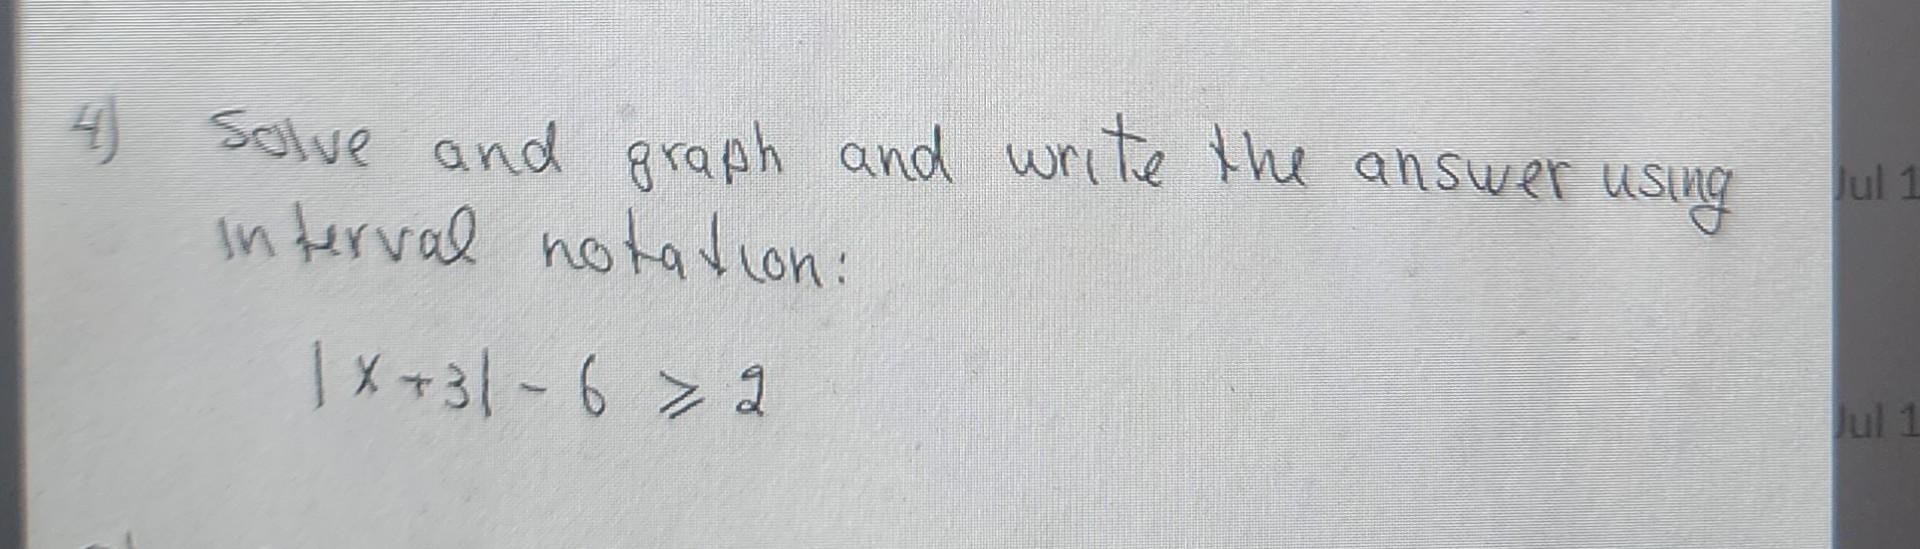 4) Solve and graph and write the answer using
interval notation:
|x+3| - 6 ⩾ 2
Jul 1
Jul 1